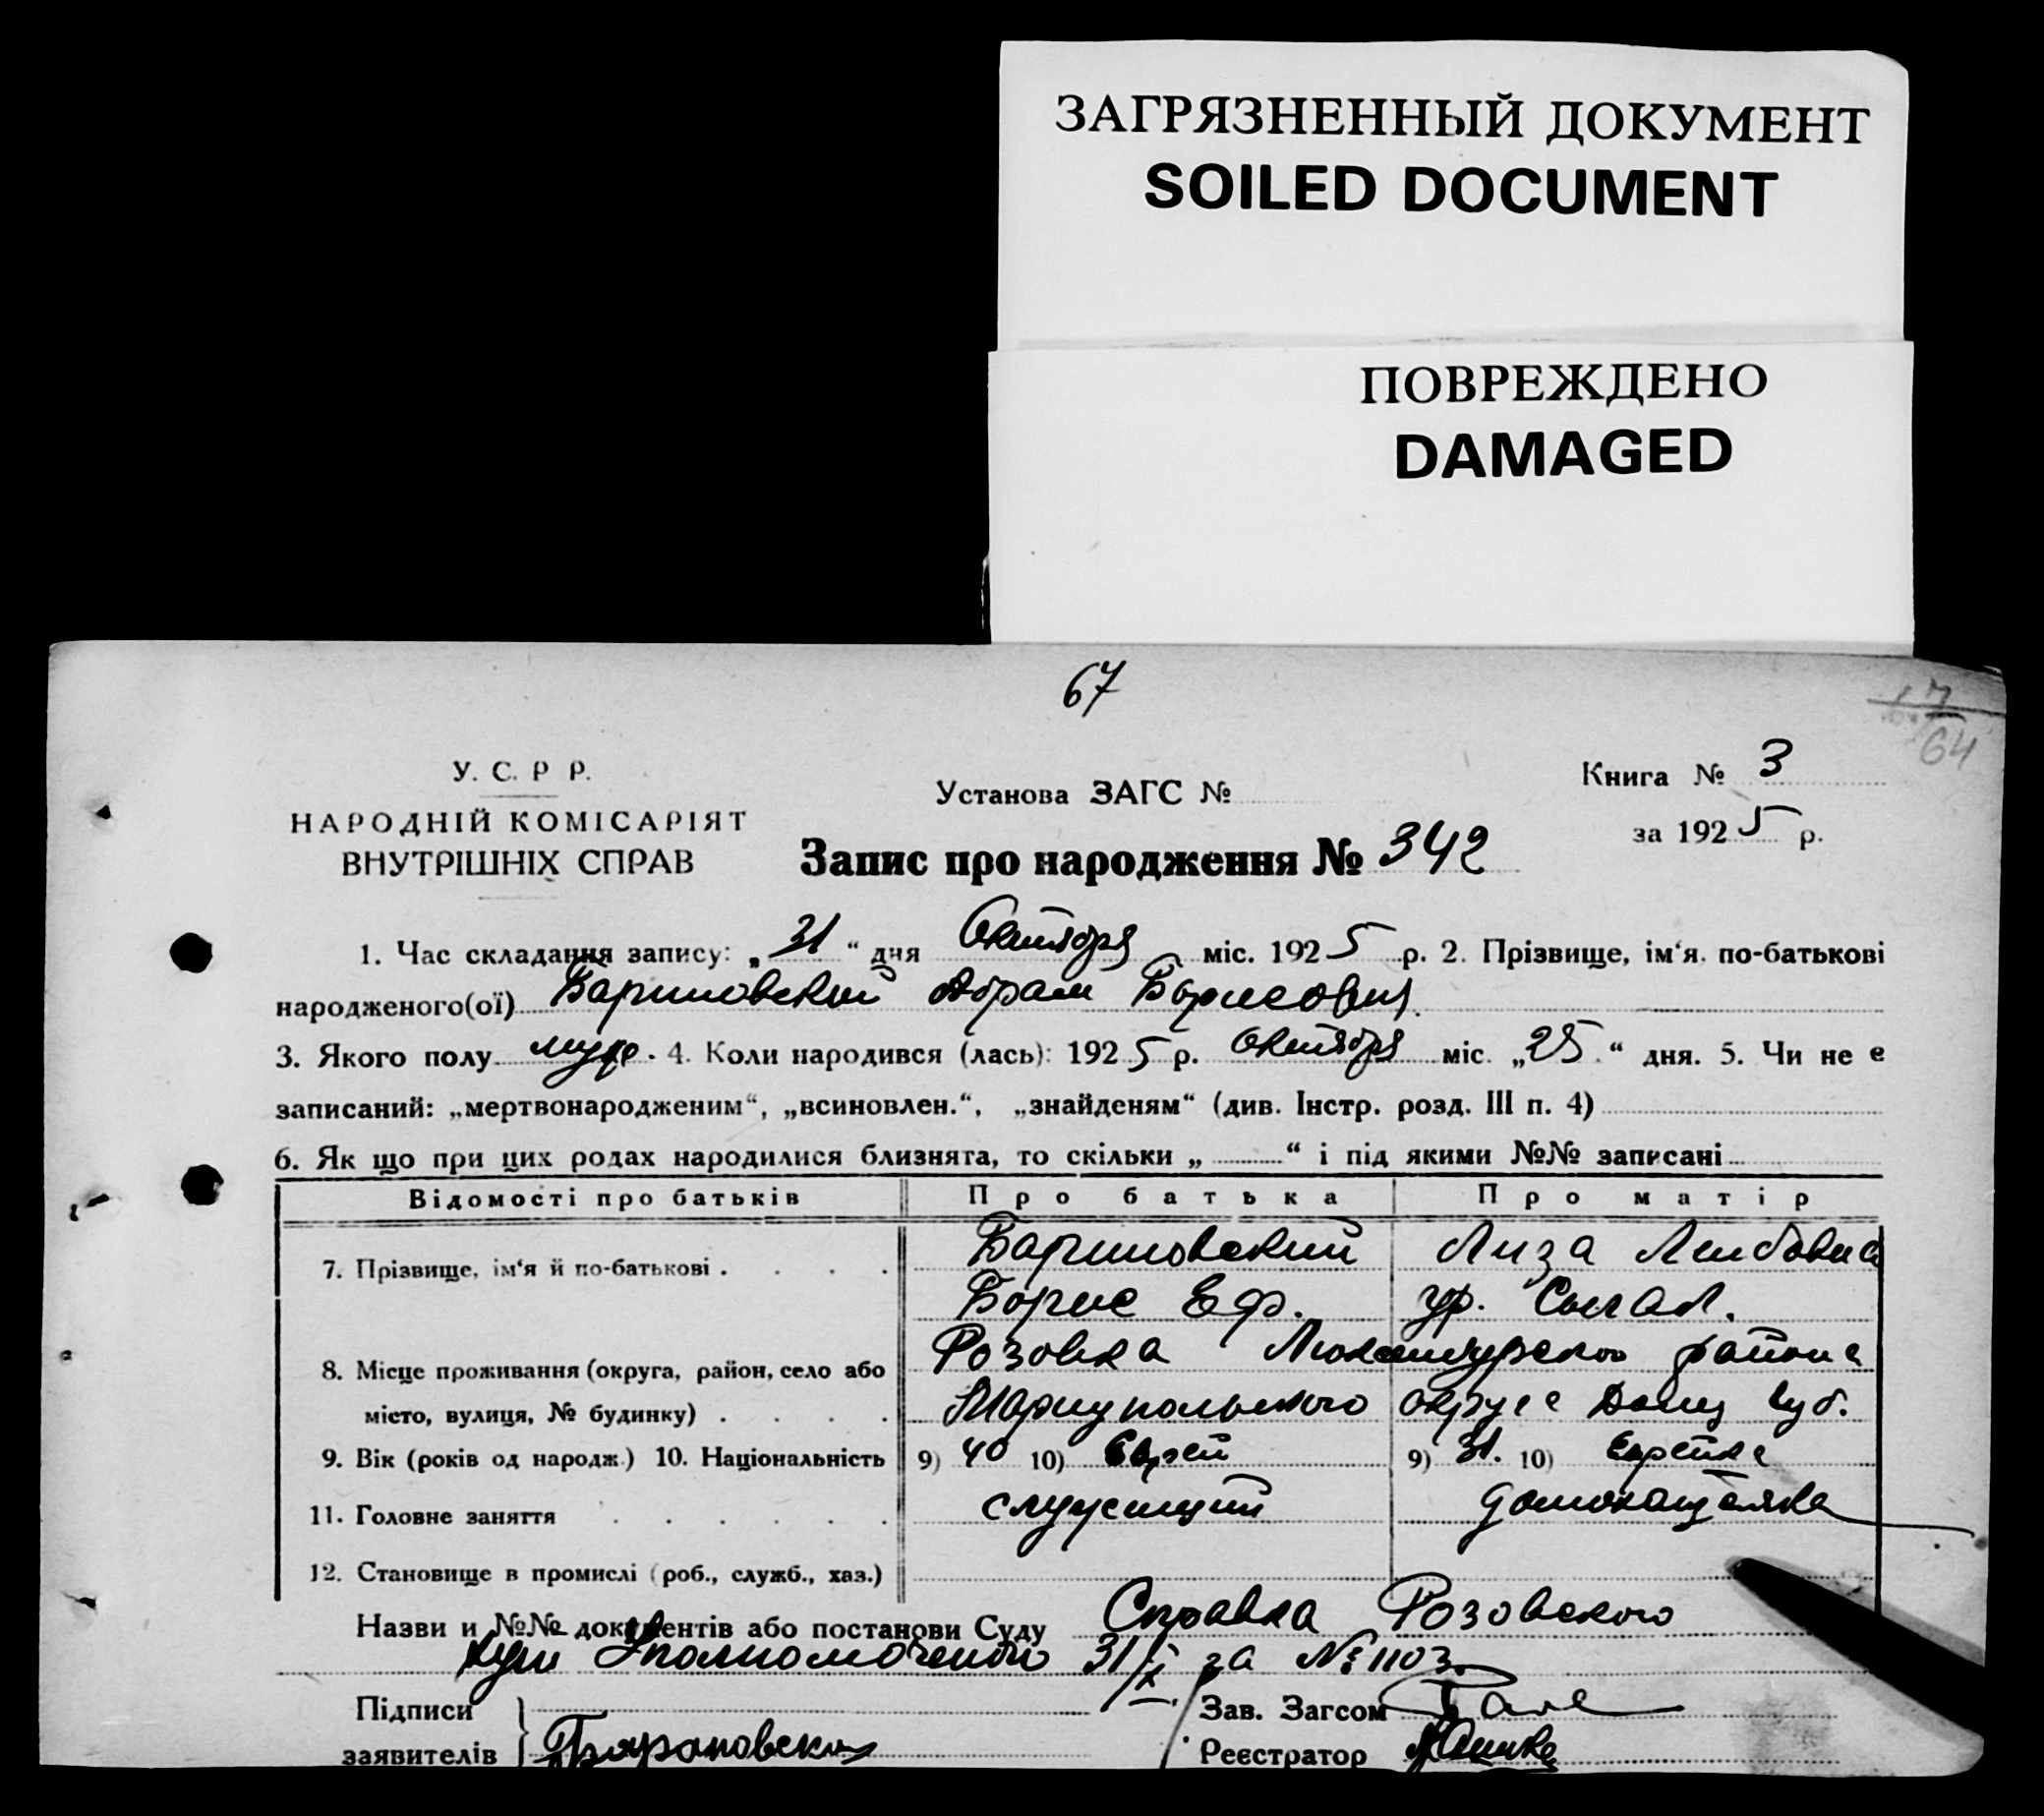 ЗАГРЯЗНЕННЫЙ ДОКУМЕНТ
SOILED DOCUMENT
ПОВРЕЖДЕНО
DAMAGED
67
64
У. С. Р Р.
НАРОДНІЙ КОМІСАРІЯТ
ВНУТРІШНІХ СПРАВ
Установа ЗАГС №
Книга № 3
за 1925 р.
Запис про народження № 342
1. Час складання запису: „31“ дня Октября міс. 1925 р. 2. Прізвище, ім‘я. по-батькові
народженого(ої) Абрам Борисович
3. Якого полу муж. 4. Коли народився (лась): 1925 р. Октября міс. „25“ дня. 5. Чи не є
записаний: „мертвонародженим“, „всиновлен.“, „знайденям“ (див. Інстр. розд. III п. 4)
6. Як що при цих родах народилися близнята, то скільки „ “ і під якими №№ записані
Відомості про батьків Про батька Про матір
7. Прізвище, ім‘я й по-батькові . . . . Лиза
Борис Еф. ур.
8. Місце проживання (округа, район, село або Розовка района
місто, вулиця, № будинку) . . . . Мариупольского округа Донец губ.
9. Вік (років од народж.) 10. Національність 9) 40 10) Еврей 9) 31. 10) Еврейка
11. Головне заняття . . . . . . служащий домохазяйка
12. Становище в промислі (роб., служб., хаз.)
Назви и №№ документів або постанови Суду Справка Розовского
Уполномоченого 31/X за № 1103.
Підписи
заявителів
Зав. Загсом
Реєстратор